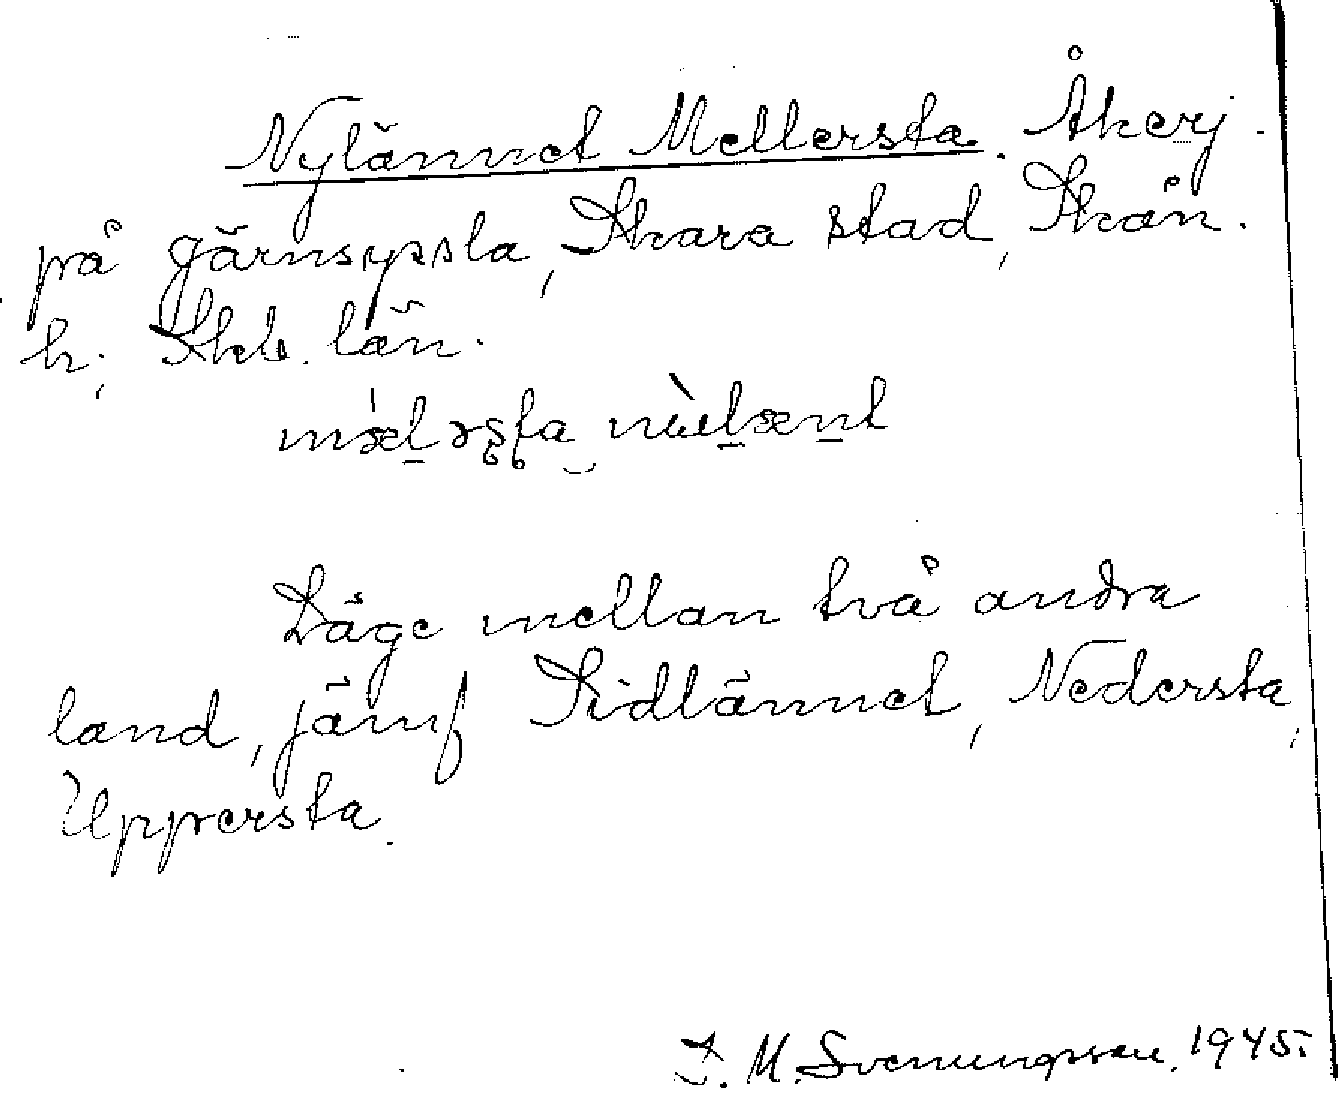 Nylännet Mellersta. Åkerj.
på Järnsyssla, Skara stad, Skån.
h., Skb. län.
Läge mellan två andra
land, jämf Sidlännet, Nedersta,
Uppersta.
J. M. Svenungsson. 1945.